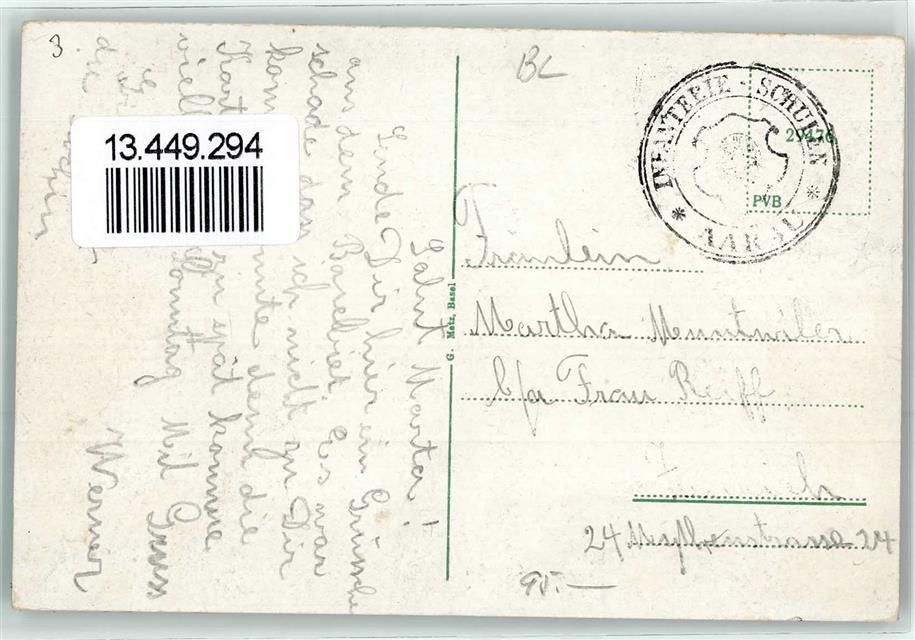 3.
BL
13.449.294
INFANTERIE - SCHULEN
* AARAU *
29476
PVB
G. Metz, Basel
Salut Marta!
Sende Dir hier ein
aus dem Baselbiet. Es war
schade das ich nicht zu Dir
kom nnte denn die
Kart zu spät komme
viell Sonntag Mit Gruss
die
Werner
Fräulein
Martha Muntwiler
b/a Frau Reiff
24 24
95.—